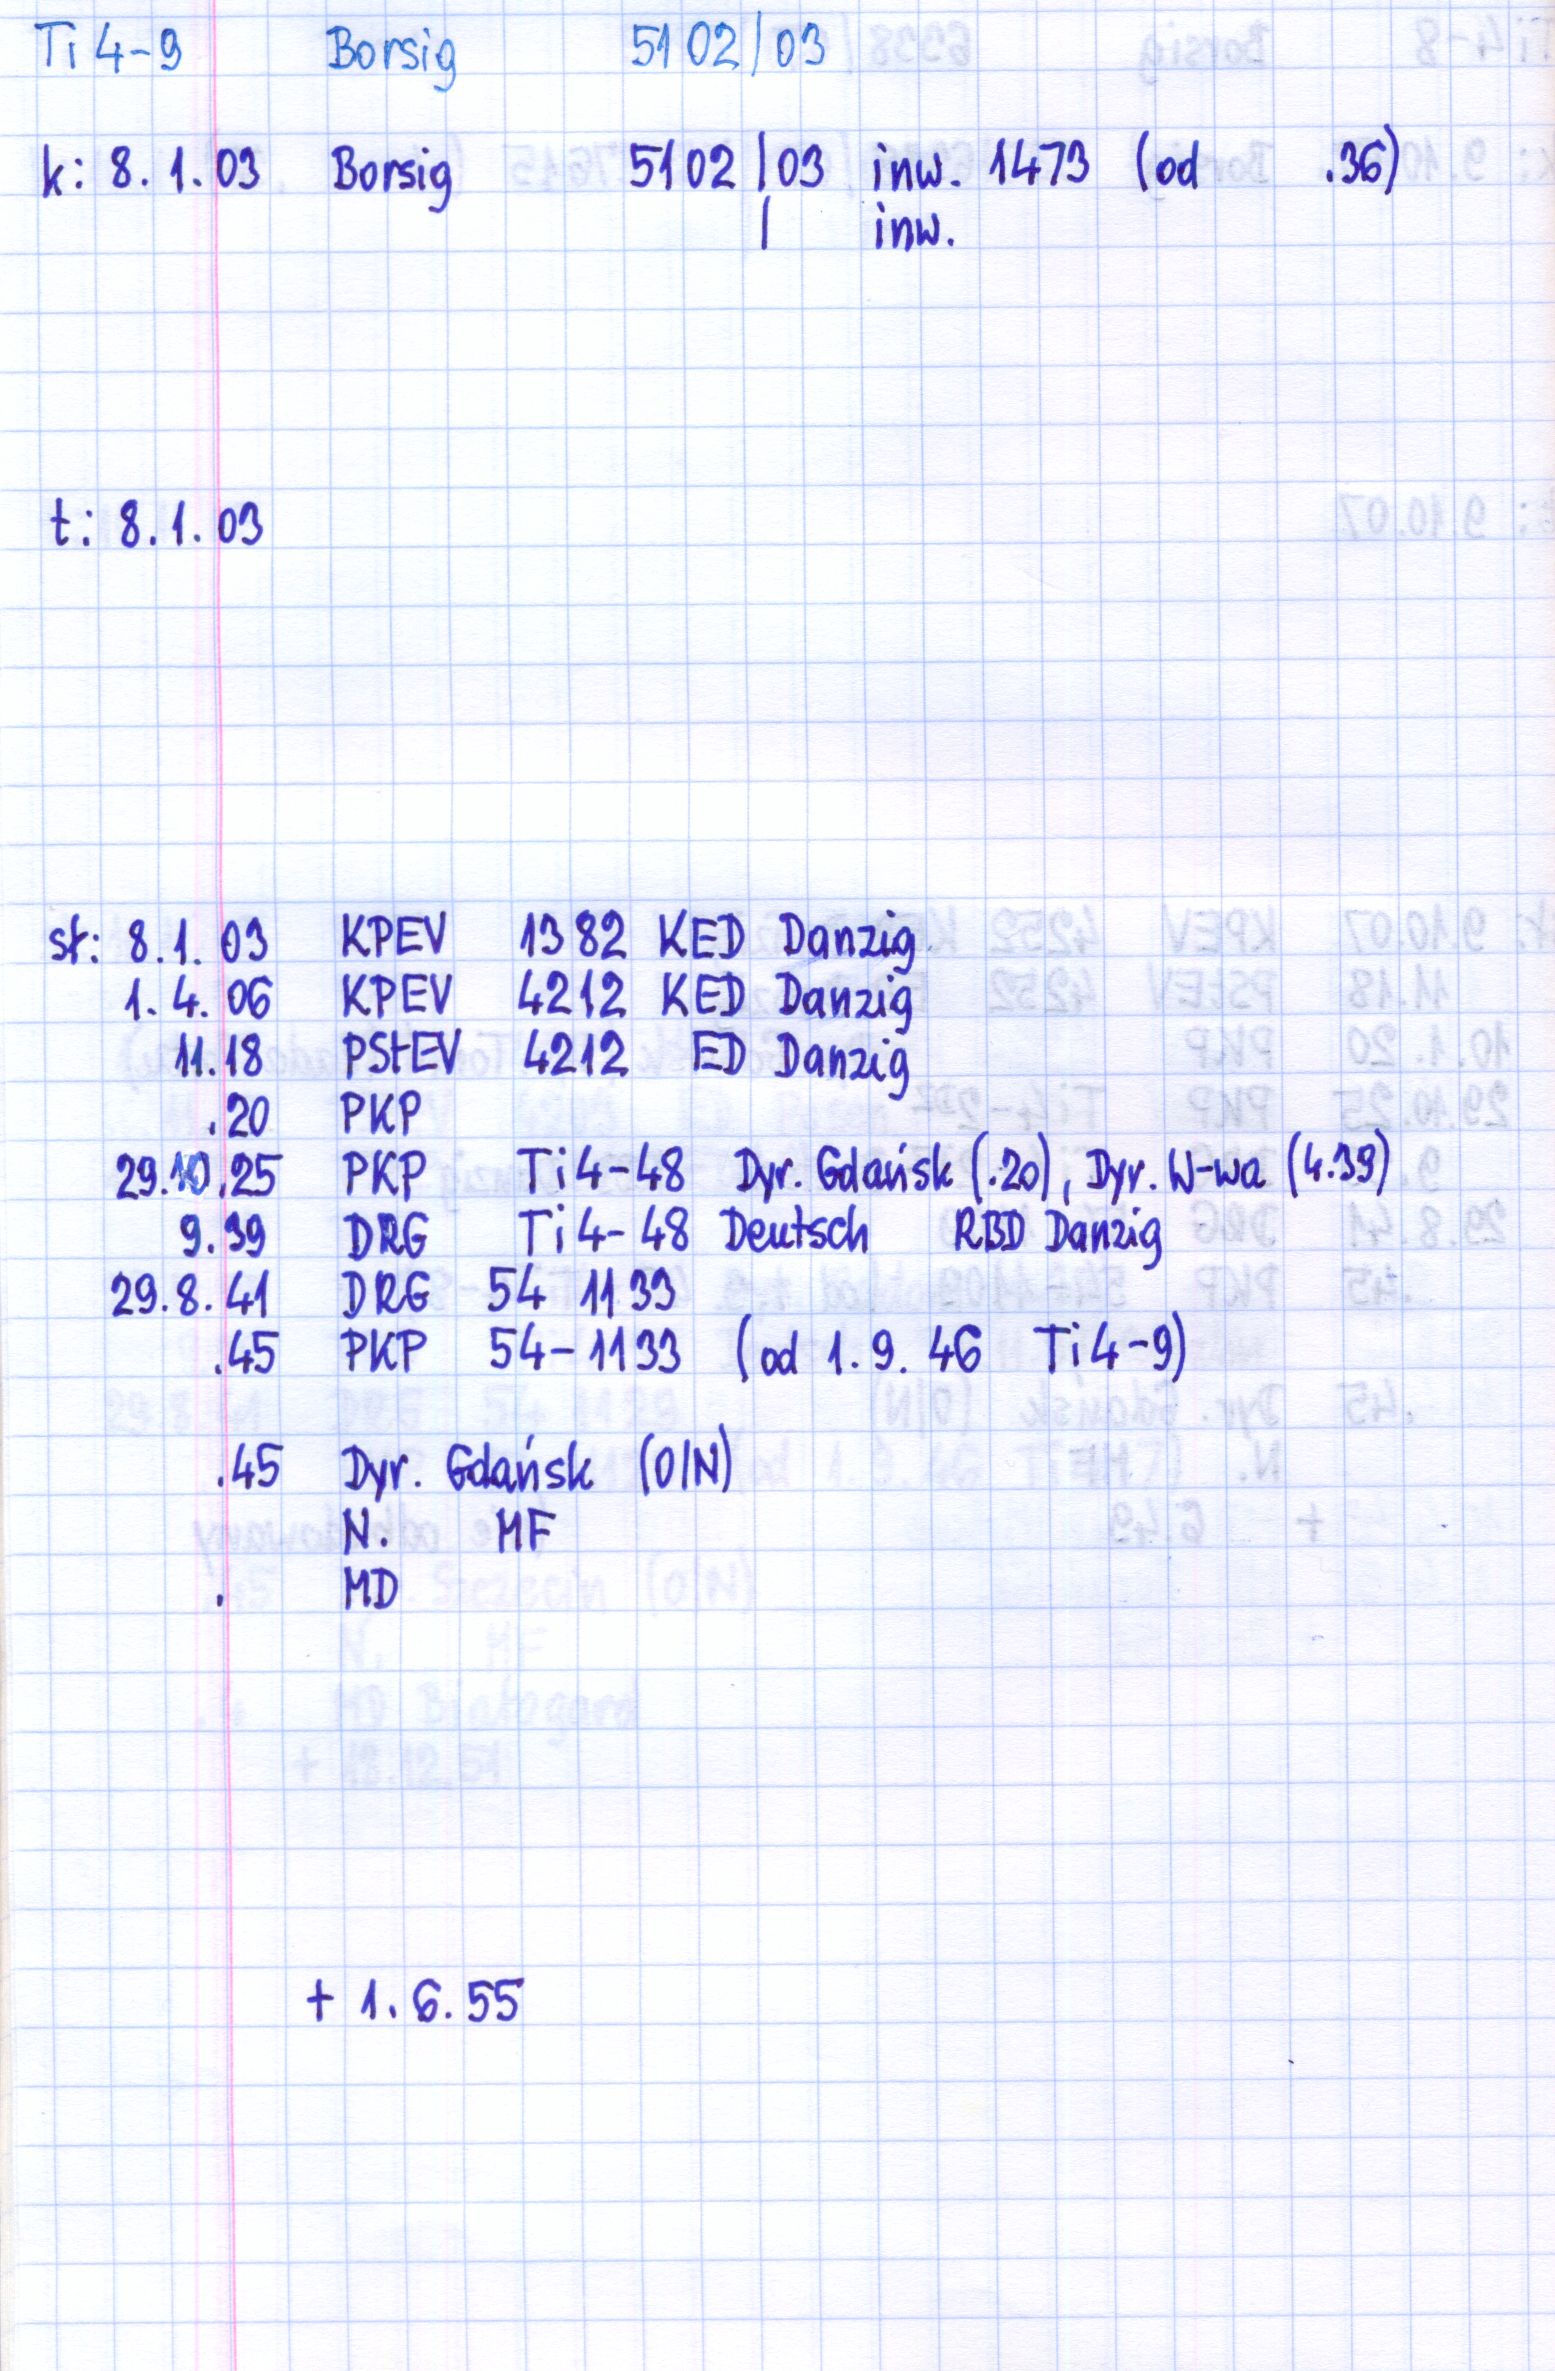 Ti4-9 Borsig 5102/03
k: 8.1.03 Borsig 5102/03 inw. 1473 (od .36)
/ inw.
t: 8.1.03
st: 8.1.03 KPEV 1382 KED Danzig
1.4.06 KPEV 4212 KED Danzig
11.18 PStEV 4212 ED Danzig
.20 PKP
29.10.25 PKP Ti4-48 Dyr. Gdańsk (.20), Dyr. W-wa (4.39)
9.39 DRG Ti4-48 Deutsch RBD Danzig
29.8.41 DRG 54 1133
.45 PKP 54-1133 (od 1.9.46 Ti4-9)
.45 Dyr. Gdańsk (O/N)
N. MF
. MD
+ 1.6.55